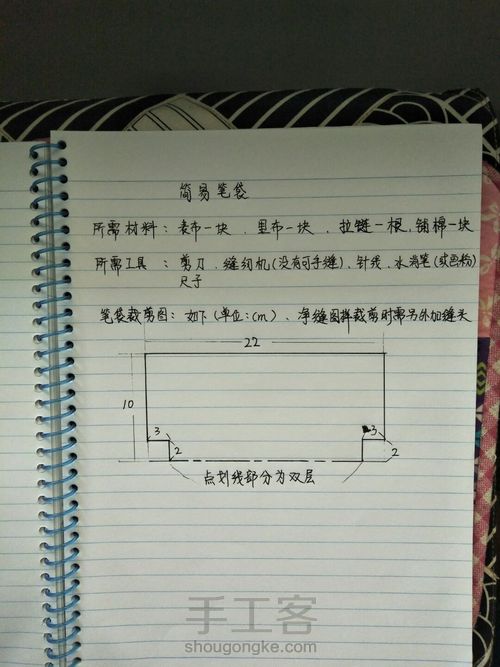 简易笔袋
所需材料：表布一块、里布一块、拉链一根、铺棉一块
所需工具：剪刀、缝纫机(没有可手缝)、针线、水消笔(或画粉)
尺子
笔袋裁剪图：如下(单位:cm)、净缝图样裁剪时需另外加缝头
22
10
3
3
2
2
点划线部分为双层
手工客
shougongke.com